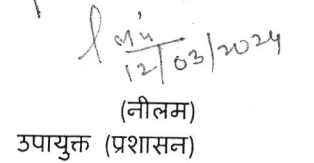 12/03/2024
(नीलम)
उपायुक्त (प्रशासन)